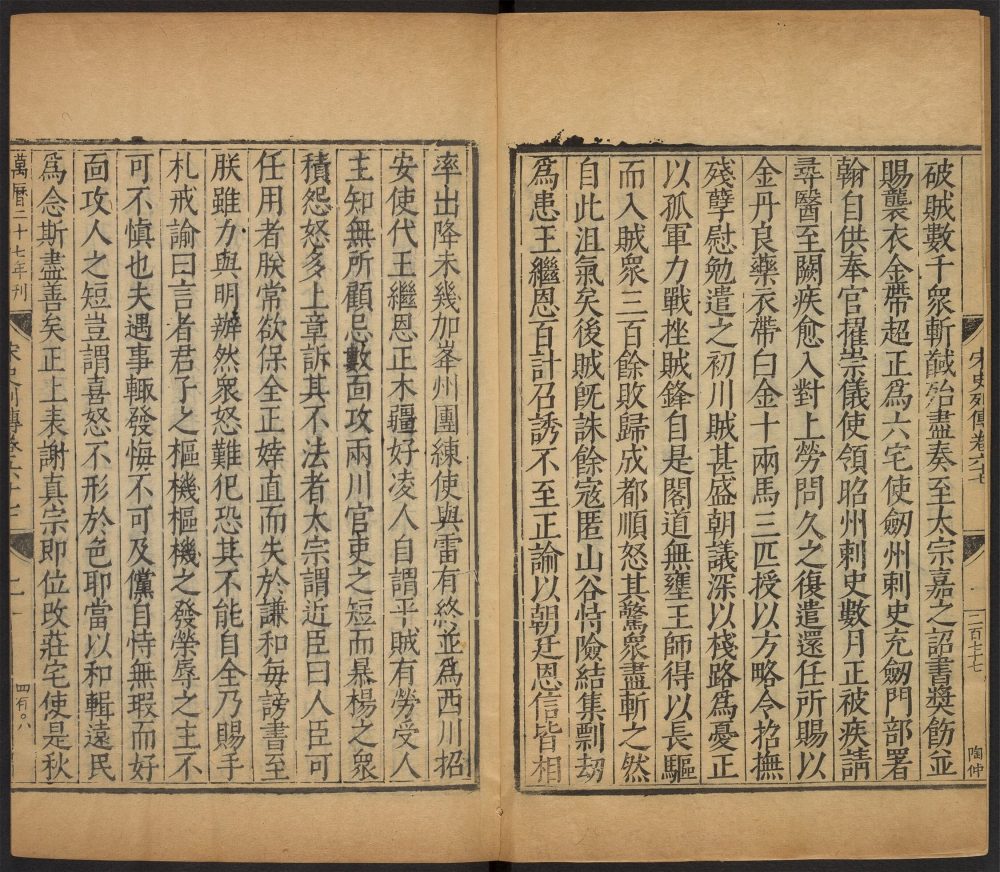 宋史列傳卷六七
一
二百七七
陶仲
破賊數千衆斬馘殆盡奏至太宗嘉之詔書奬飭並
賜襲衣金帶超正爲六宅使劒州刺史充劒門部署
翰自供奉官擢崇儀使領昭州刺史數月正被疾請
尋醫至闕疾愈入對上勞問久之復遣還任所賜以
金丹良藥衣帶白金十兩馬三匹授以方略令招撫
殘孽慰勉遣之初川賊甚盛朝議深以棧路爲憂正
以孤軍力戰挫賊鋒自是閣道無壅王師得以長驅
而入賊衆三百餘敗歸成都順怒其驚衆盡斬之然
自此沮氣矣後賊旣誅餘寇匿山谷恃險結集剽劫
爲患王繼恩百計召誘不至正諭以朝廷恩信皆相
率出降未幾加峯州團練使與雷有終並爲西川招
安使代王繼恩正木彊好凌人自謂平賊有勞受人
主知無所顧忌數面攻兩川官吏之短而暴楊之衆
積怨怒多上章訴其不法者太宗謂近臣曰人臣可
任用者朕常欲保全正婞直而失於謙和毎謗書至
朕雖力與明辨然衆怒難犯恐其不能自全乃賜手
札戒諭曰言者君子之樞機樞機之發榮辱之主不
可不愼也夫遇事輒發悔不可及儻自恃無瑕而好
面攻人之短豈謂喜怒不形於色耶當以和輯遠民
爲念斯盡善矣正上表謝真宗即位改莊宅使是秋
萬曆二十七年刊
宋史列傳卷六十七
四百〇八